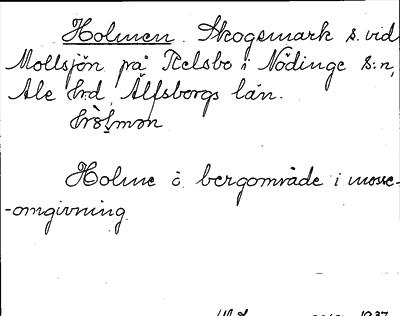 Holmen Skogsmark s. vid
Mollsjön på Relsbo i Nödinge s:n,
Ale hrd Älfsborgs län.
Holme o bergområde i mosse-
-omgivning
1937